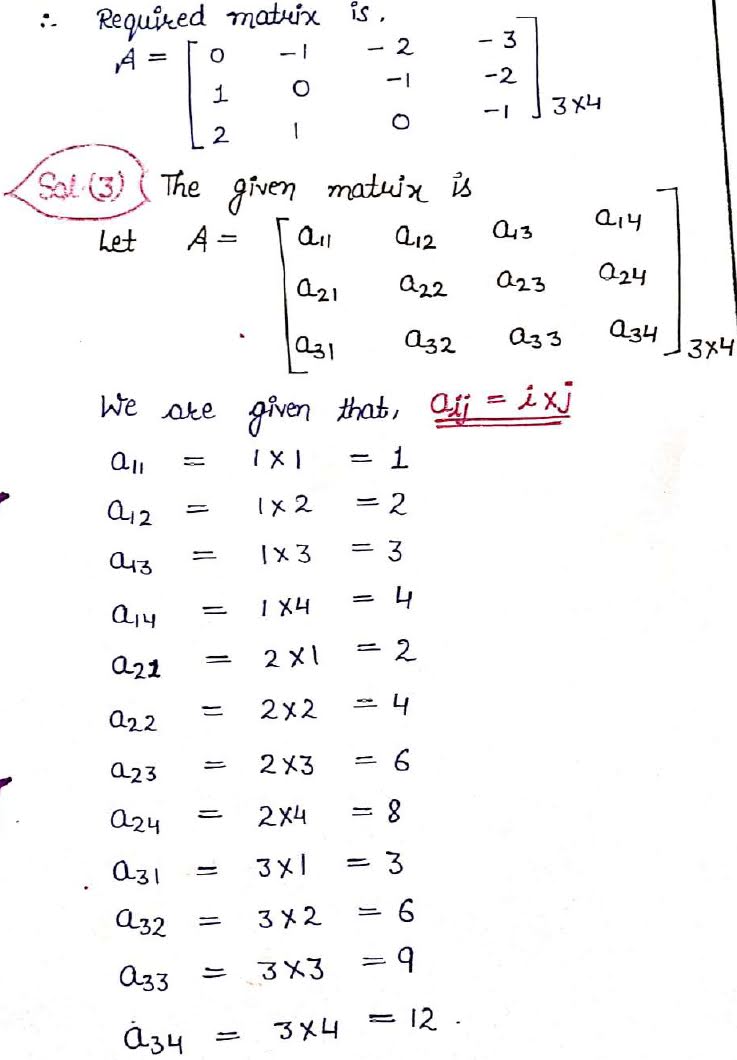 ∴ Required matrix is.
A = [ 0 -1 -2 -3
1 0 -1 -2
2 1 0 -1 ] 3×4
Sol.(3) The given matrix is
Let A = [ a11 a12 a13 a14
a21 a22 a23 a24
a31 a32 a33 a34 ] 3×4
We are given that, aij = i×j
a11 = 1×1 = 1
a12 = 1×2 = 2
a13 = 1×3 = 3
a14 = 1×4 = 4
a21 = 2×1 = 2
a22 = 2×2 = 4
a23 = 2×3 = 6
a24 = 2×4 = 8
a31 = 3×1 = 3
a32 = 3×2 = 6
a33 = 3×3 = 9
a34 = 3×4 = 12.